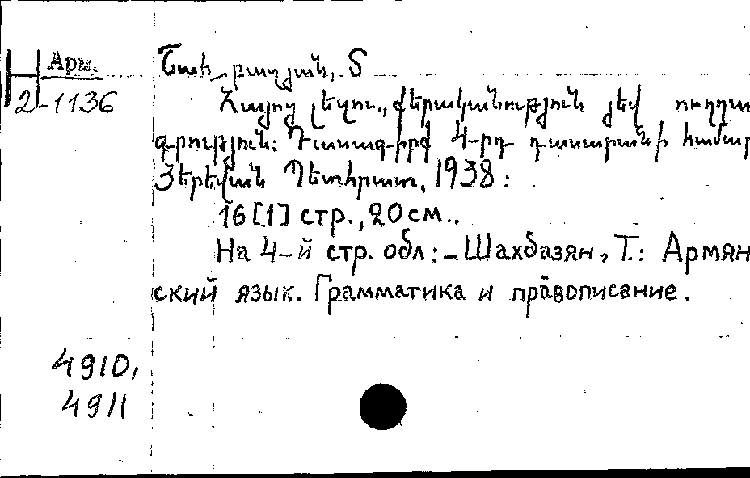 Арм.
Н
2-1136
Շահբազյան, Տ
Հայոց լեզու, քերականություն յեվ ուղղա
գրություն: Դասագիրք 4-րդ դասարանի համար
Յերեվան Պետհրատ, 1938:
16[1] стр., 20 см..
На 4-й стр. обл: – Шахбазян, Т.: Армян
ский язык. Грамматика и правописание.
4910,
4911